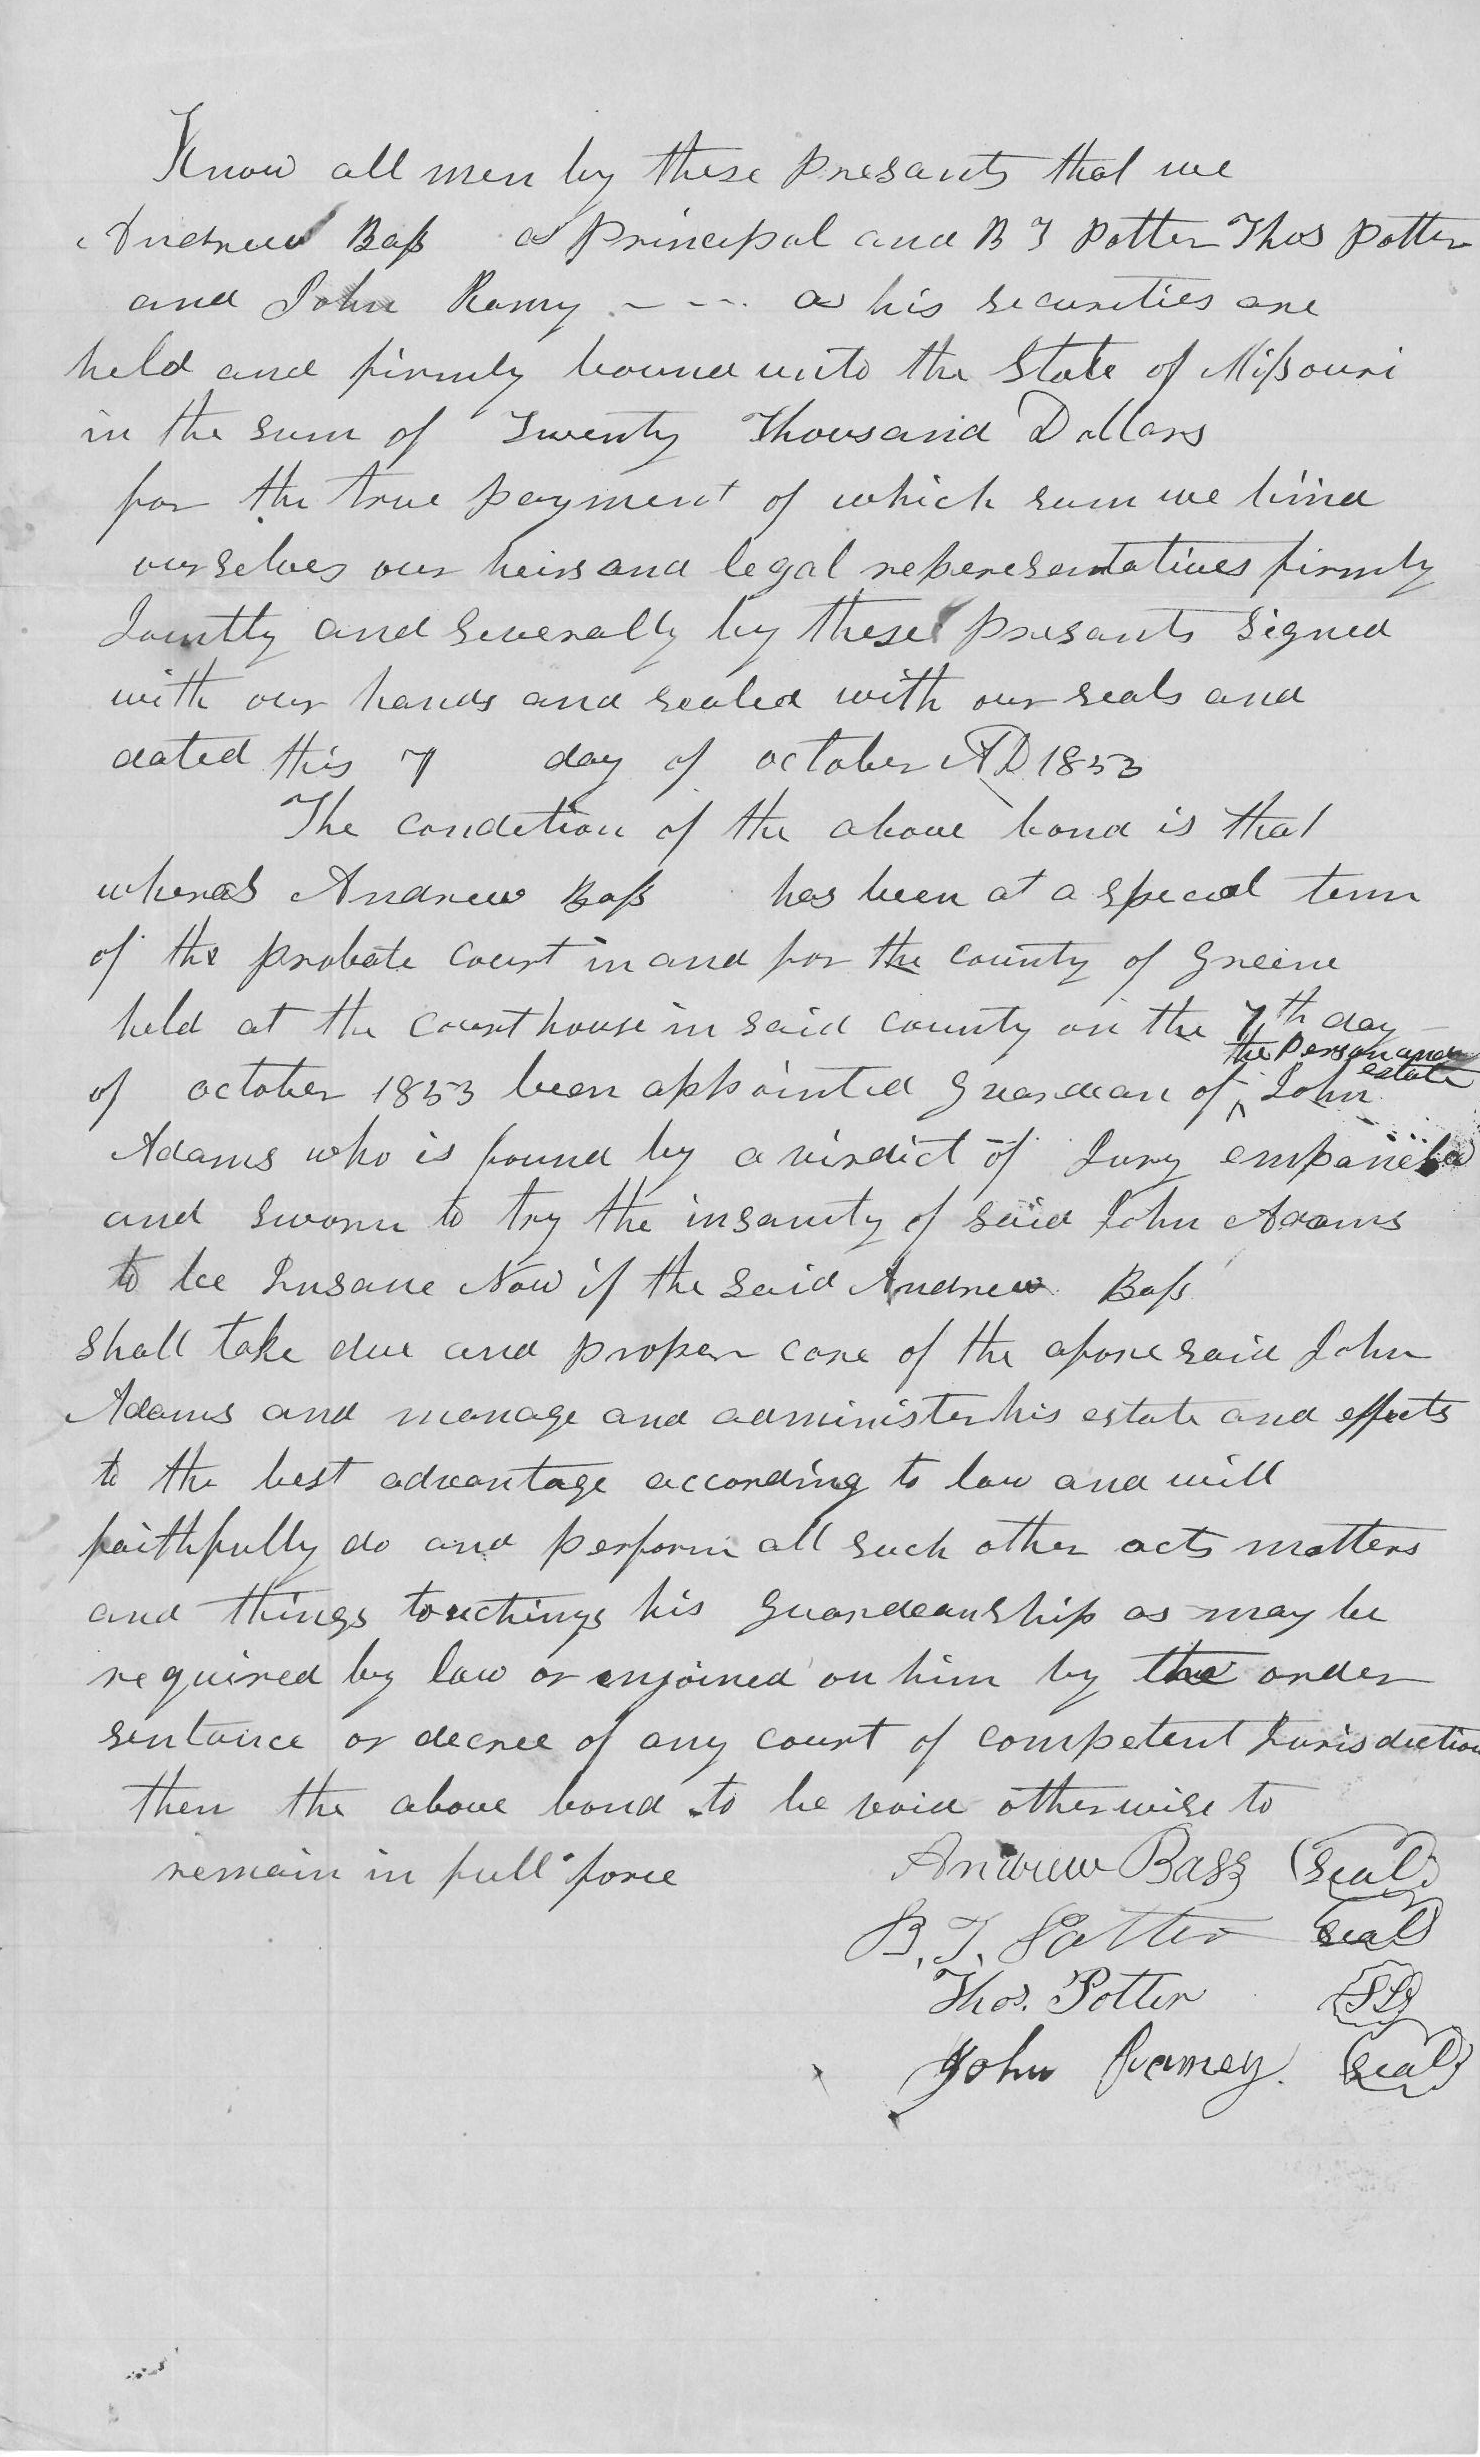 Know all men by these presants that we
Andrew Bass as principal and B T Potter Thos Potter
and John Ramy - - - as his securities are
held and firmly bound unto the State of Missouri
in the sum of Twenty Thousand Dollars
for the true payment of which sum we bind
ourselves our heirs and legal reperesentatives firmly
Jountly and severally by these presants signed
with our hands and sealed with our seals and
dated this 7 day of october AD 1853
The condetion of the above bond is that
whereas Andrew Bass has been at a specal term
of the probate court in and for the county of Greene
held at the court house in said county on the 7th day
the person and estate
of october 1853 been appointed guardean of ^ John
Adams who is found by a virdict of Jury empaneled
and sworn to try the insanity of said John Adams
to be Insane Now if the said Andrew Bass
shall take due and proper care of the afore said John
Adams and manage and administer his estate and effects
to the best advantage according to law and will
faithfully do and perform all such other acts matters
and things touchings his guardeanship as may be
required by law or enjoined on him by the order
sentance or decree of any court of competent Jurisdiction
then the above bond to be void otherwise to
remain in full force
Andrew Bass (Seal)
B. T. Potter Seal
Thos. Potter (SL)
John Ramey. (Seal)